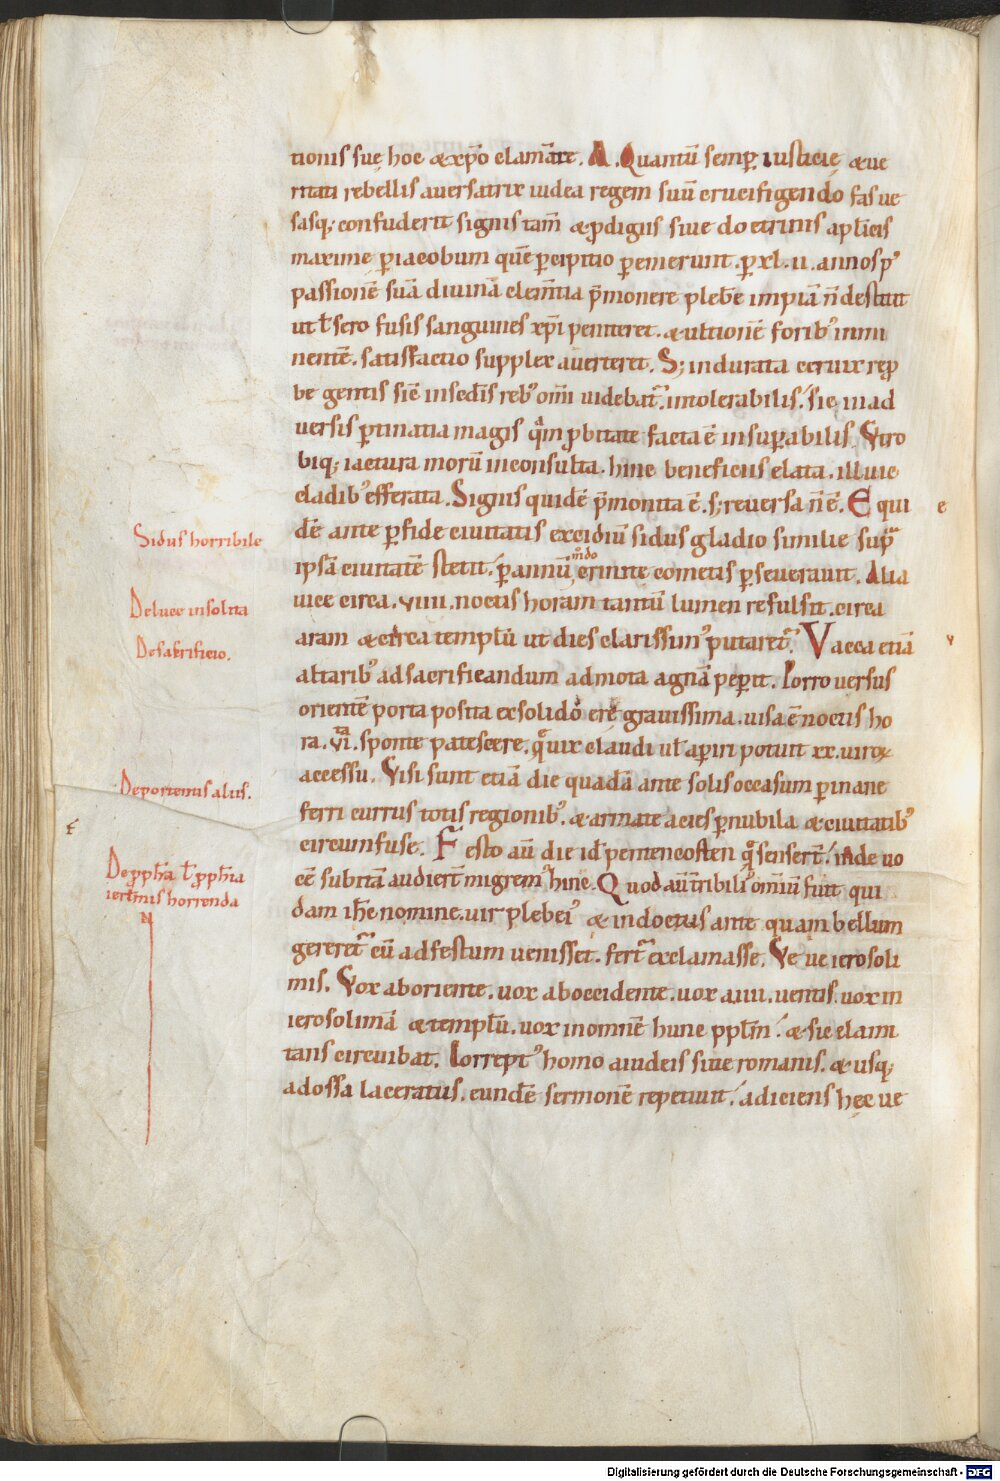 tionis suę hoc & xp̄o clamāte. A. Quantū semp̲ iusticię & ue
ritati rebellis auersatrix iudea regem suū crucifigendo fas ue
fasq; confuderit signis tam̄ & ꝓdigiis siue doctrinis apl̄icis
maxime p̲ iacobum quē p̲cipitio p̲emerunt. p̲ xl.ii. annos p᾽
passionē suā diuinā clem̄tia p̄monere plebē impiā n̄ destitit
ut t̄ sero fusis sanguines xp̄i peniteret. & ultionē forib᾽ immi
nentē. satisfactio supplex auerteret. S; indurata ceruix reꝓ
be gentis sic̄ in sed̄is reb᾽ om̄i uidebat᷑ intolerabilis. sic in ad
uersis p̲tinatia magis qͣm ꝓbitate facta ē insup̲abilis. Utro
biq; iactura morū inconsulta. hinc beneficiis elata. illuuie
cladib᾽ efferata. Signis quidē p̄monita ē. s; reuersa n̄ ē. E qui
e
dē ante p̲fide ciuitatis excidiū sidus gladio simile supͣ
Sidus horribile
ipsā ciuitatē stetit. p̲ annū crinite cometis p̲seuerauit. Alia
m̊do
uice circa .viiii. noctis horam tantū lumen refulsit. circa
De luce insolita
aram & circa templū ut dies clarissim᾽ putaret᷑. Vacca etiā
v
De sacrificio.
altarib᾽ ad sacrificandum admota agnā pep̲it. Porro uersus
orientē porta posita ex solido ere grauissima. uisa ē noctis ho
ra .vi. sponte patescere. qͣ uix claudi ut̄ ap̲iri potuit xx. uiroꝝ
ta
accessu. Visi sunt etiā die quadā ante solis occasum p̲ inane
De portentis aliis.
ferri currus totis regionib᾽. & armate acies p̲ nubila & ciuitatib᾽
f
circumfuse. Festo aū die id̄ pentecosten qͣ senser̄t. inde uo
De ꝓph̄ia t̄ ꝓph̄ia
ierem̄is horrenda
cē subitā audier̄t migrem᾽ hinc. Quod aū t̄ribili᾽ om̄iū fuit qui
dam ih̄c nomine. uir plebei᾽ & indoctus ante quam bellum
gereret᷑ cū ad festum uenisset. fert᷑ exclamasse. Ve ue ierosoli
mis. Vox ab oriente. uox ab occidente. uox a iiii. uentis. uox in
ierosolimā & templū. uox in omnē hunc ppl̄m. & sic clami
tans circuibat. Porrept᾽ homo a iudeis siue romanis. & usq;
ad ossa laceratus. eundē sermonē repetiuit. adiciens hęc ue
Digitalisierung gefördert durch die Deutsche Forschungsgemeinschaft - DFG